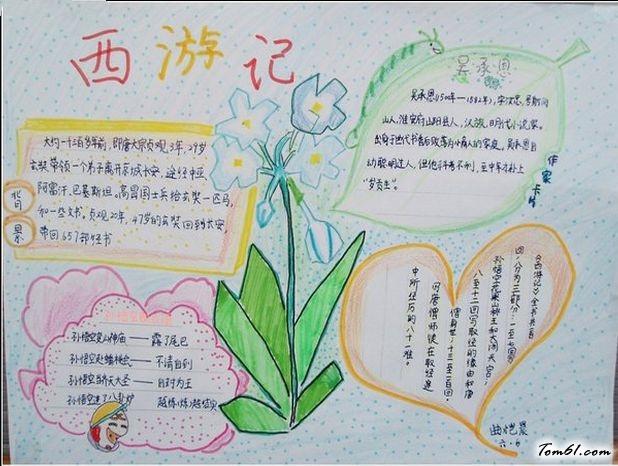 西游记
背景
大约一千三百多年前，即唐太宗贞观3年，29岁
玄奘带领一个弟子离开京城长安，途经中亚、
阿富汗、巴基斯坦。高昌国士兵给玄奘一匹马，
和一些文书。贞观20年，47岁的玄奘回到长安，
带回657部经书
吴承恩
吴承恩(1500年—1582年)，字汝忠，号射阳
山人，淮安府山阳县人，汉族，明代小说家。
自幼聪明过人，但他
"岁贡生"。
作家卡片
孙悟空
孙悟空变山神庙——露了尾巴
孙悟空赴蟠桃会——不请自到
孙悟空称齐天大圣——自封为王
孙悟空进了八卦炉
《西游记》全书共百
回，八分为三部分：一至七回写
孙悟空花果山称王和大闹天宫；
八至十二回写取经的缘由和唐
僧身世；十三至一百回
写唐僧师徒在取经途
中所经历的八十一难。
六·6
Tom61.com